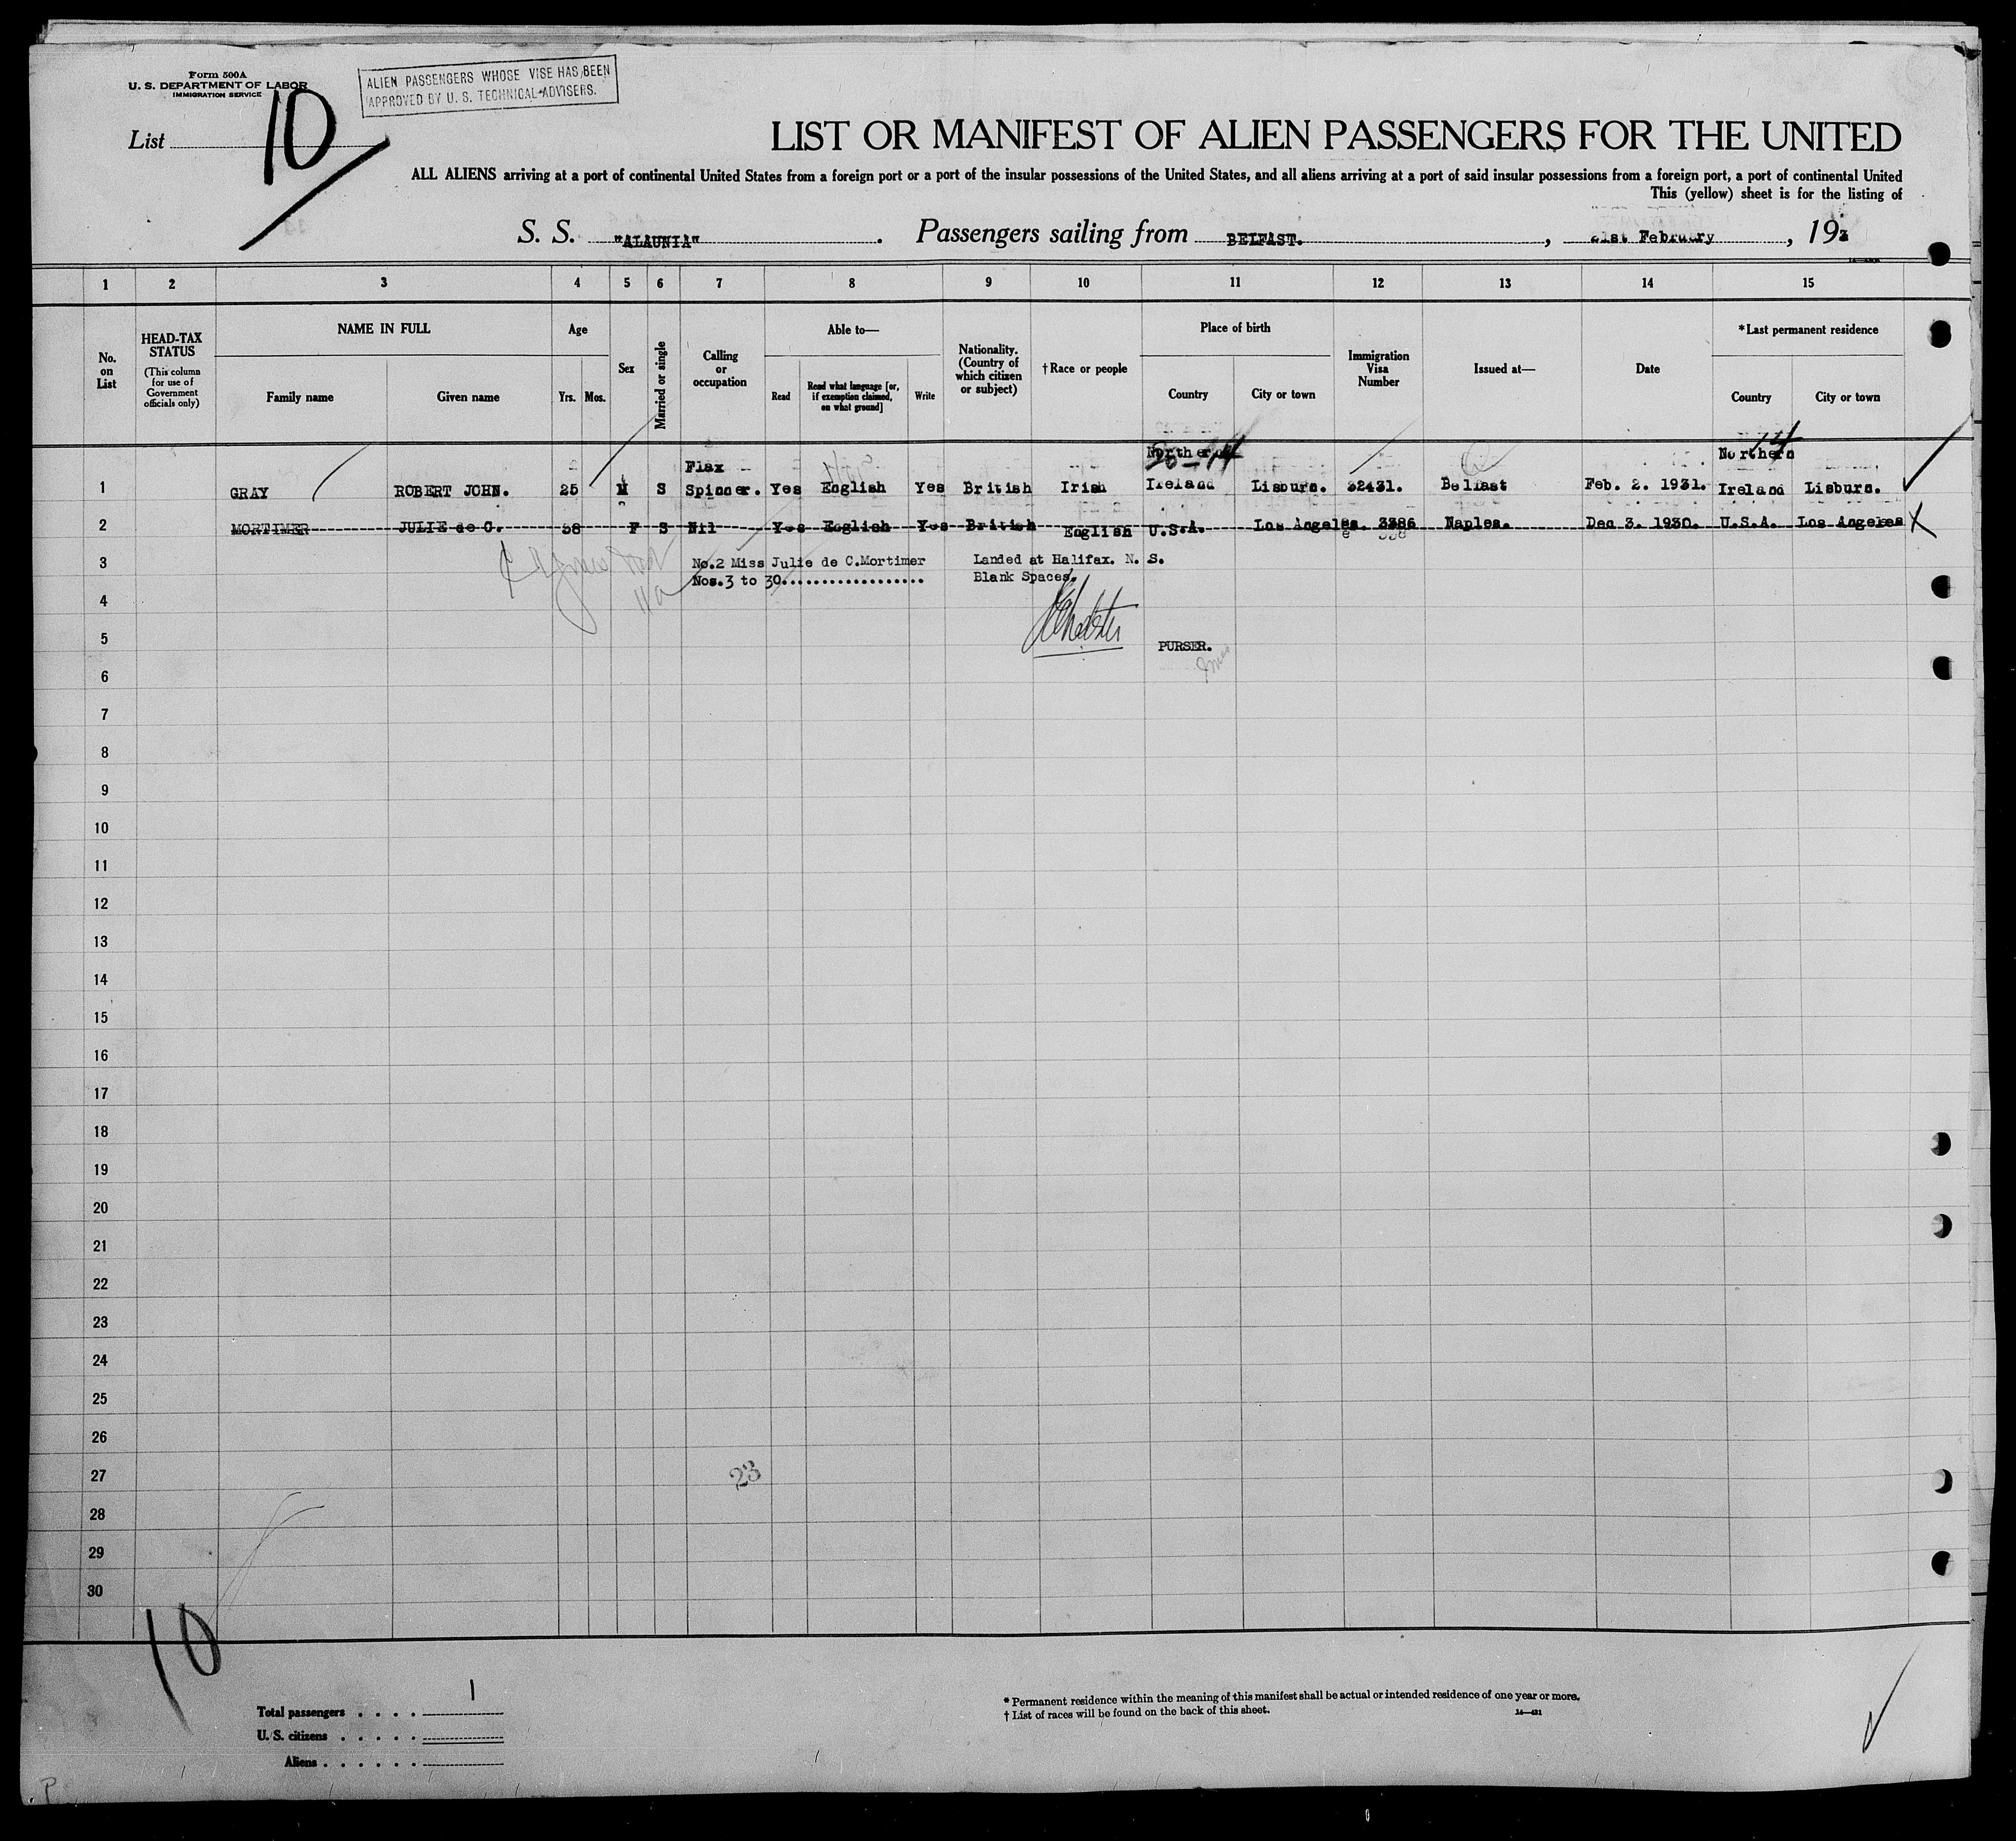 Form 500A
U. S. DEPARTMENT OF LABOR
IMMIGRATION SERVICE
ALIEN PASSENGERS WHOSE VISE HAS BEEN
APPROVED BY U. S. TECHNICAL ADVISERS.
List 10
LIST OR MANIFEST OF ALIEN PASSENGERS FOR THE UNITED
ALL ALIENS arriving at a port of continental United States from a foreign port or a port of the insular possessions of the United States, and all aliens arriving at a port of said insular possessions from a foreign port, a port of continental United
This (yellow) sheet is for the listing of
S. S. "ALAUNIA". Passengers sailing from BELFAST., 21st February, 193
1 2 3 4 5 6 7 8 9 10 11 12 13 14 15
No. on List
HEAD-TAX STATUS
(This column for use of Government officials only)
NAME IN FULL
Family name Given name
Age
Yrs. Mos.
Sex
Married or single
Calling or occupation
Able to—
Read
Read what language [or, if exemption claimed, on what ground]
Write
Nationality. (Country of which citizen or subject)
†Race or people
Place of birth
Country City or town
Immigration Visa Number
Issued at—
Date
*Last permanent residence
Country City or town
Flax Northern 14 Northern 14
1 GRAY ROBERT JOHN. 25 M S Spinner. Yes English Yes British Irish Ireland Lisburn. 32431. Belfast Feb. 2. 1931. Ireland Lisburn.
2 MORTIMER JULIE de C. 38 F S Nil Yes English Yes British English U.S.A. Los Angeles. 3386 Naples. Dec 3. 1930. U.S.A. Los Angeles X
3 No.2 Miss Julie de C.Mortimer Landed at Halifax. N. S.
Nos.3 to 30.................. Blank Spaces.
4
5 PURSER.
6
7
8
9
10
11
12
13
14
15
16
17
18
19
20
21
22
23
24
25
26
27 23
28
29
30
10
Total passengers . . . . 1
U. S. citizens . . . . .
Aliens . . . . . .
* Permanent residence within the meaning of this manifest shall be actual or intended residence of one year or more.
† List of races will be found on the back of this sheet.
14—431